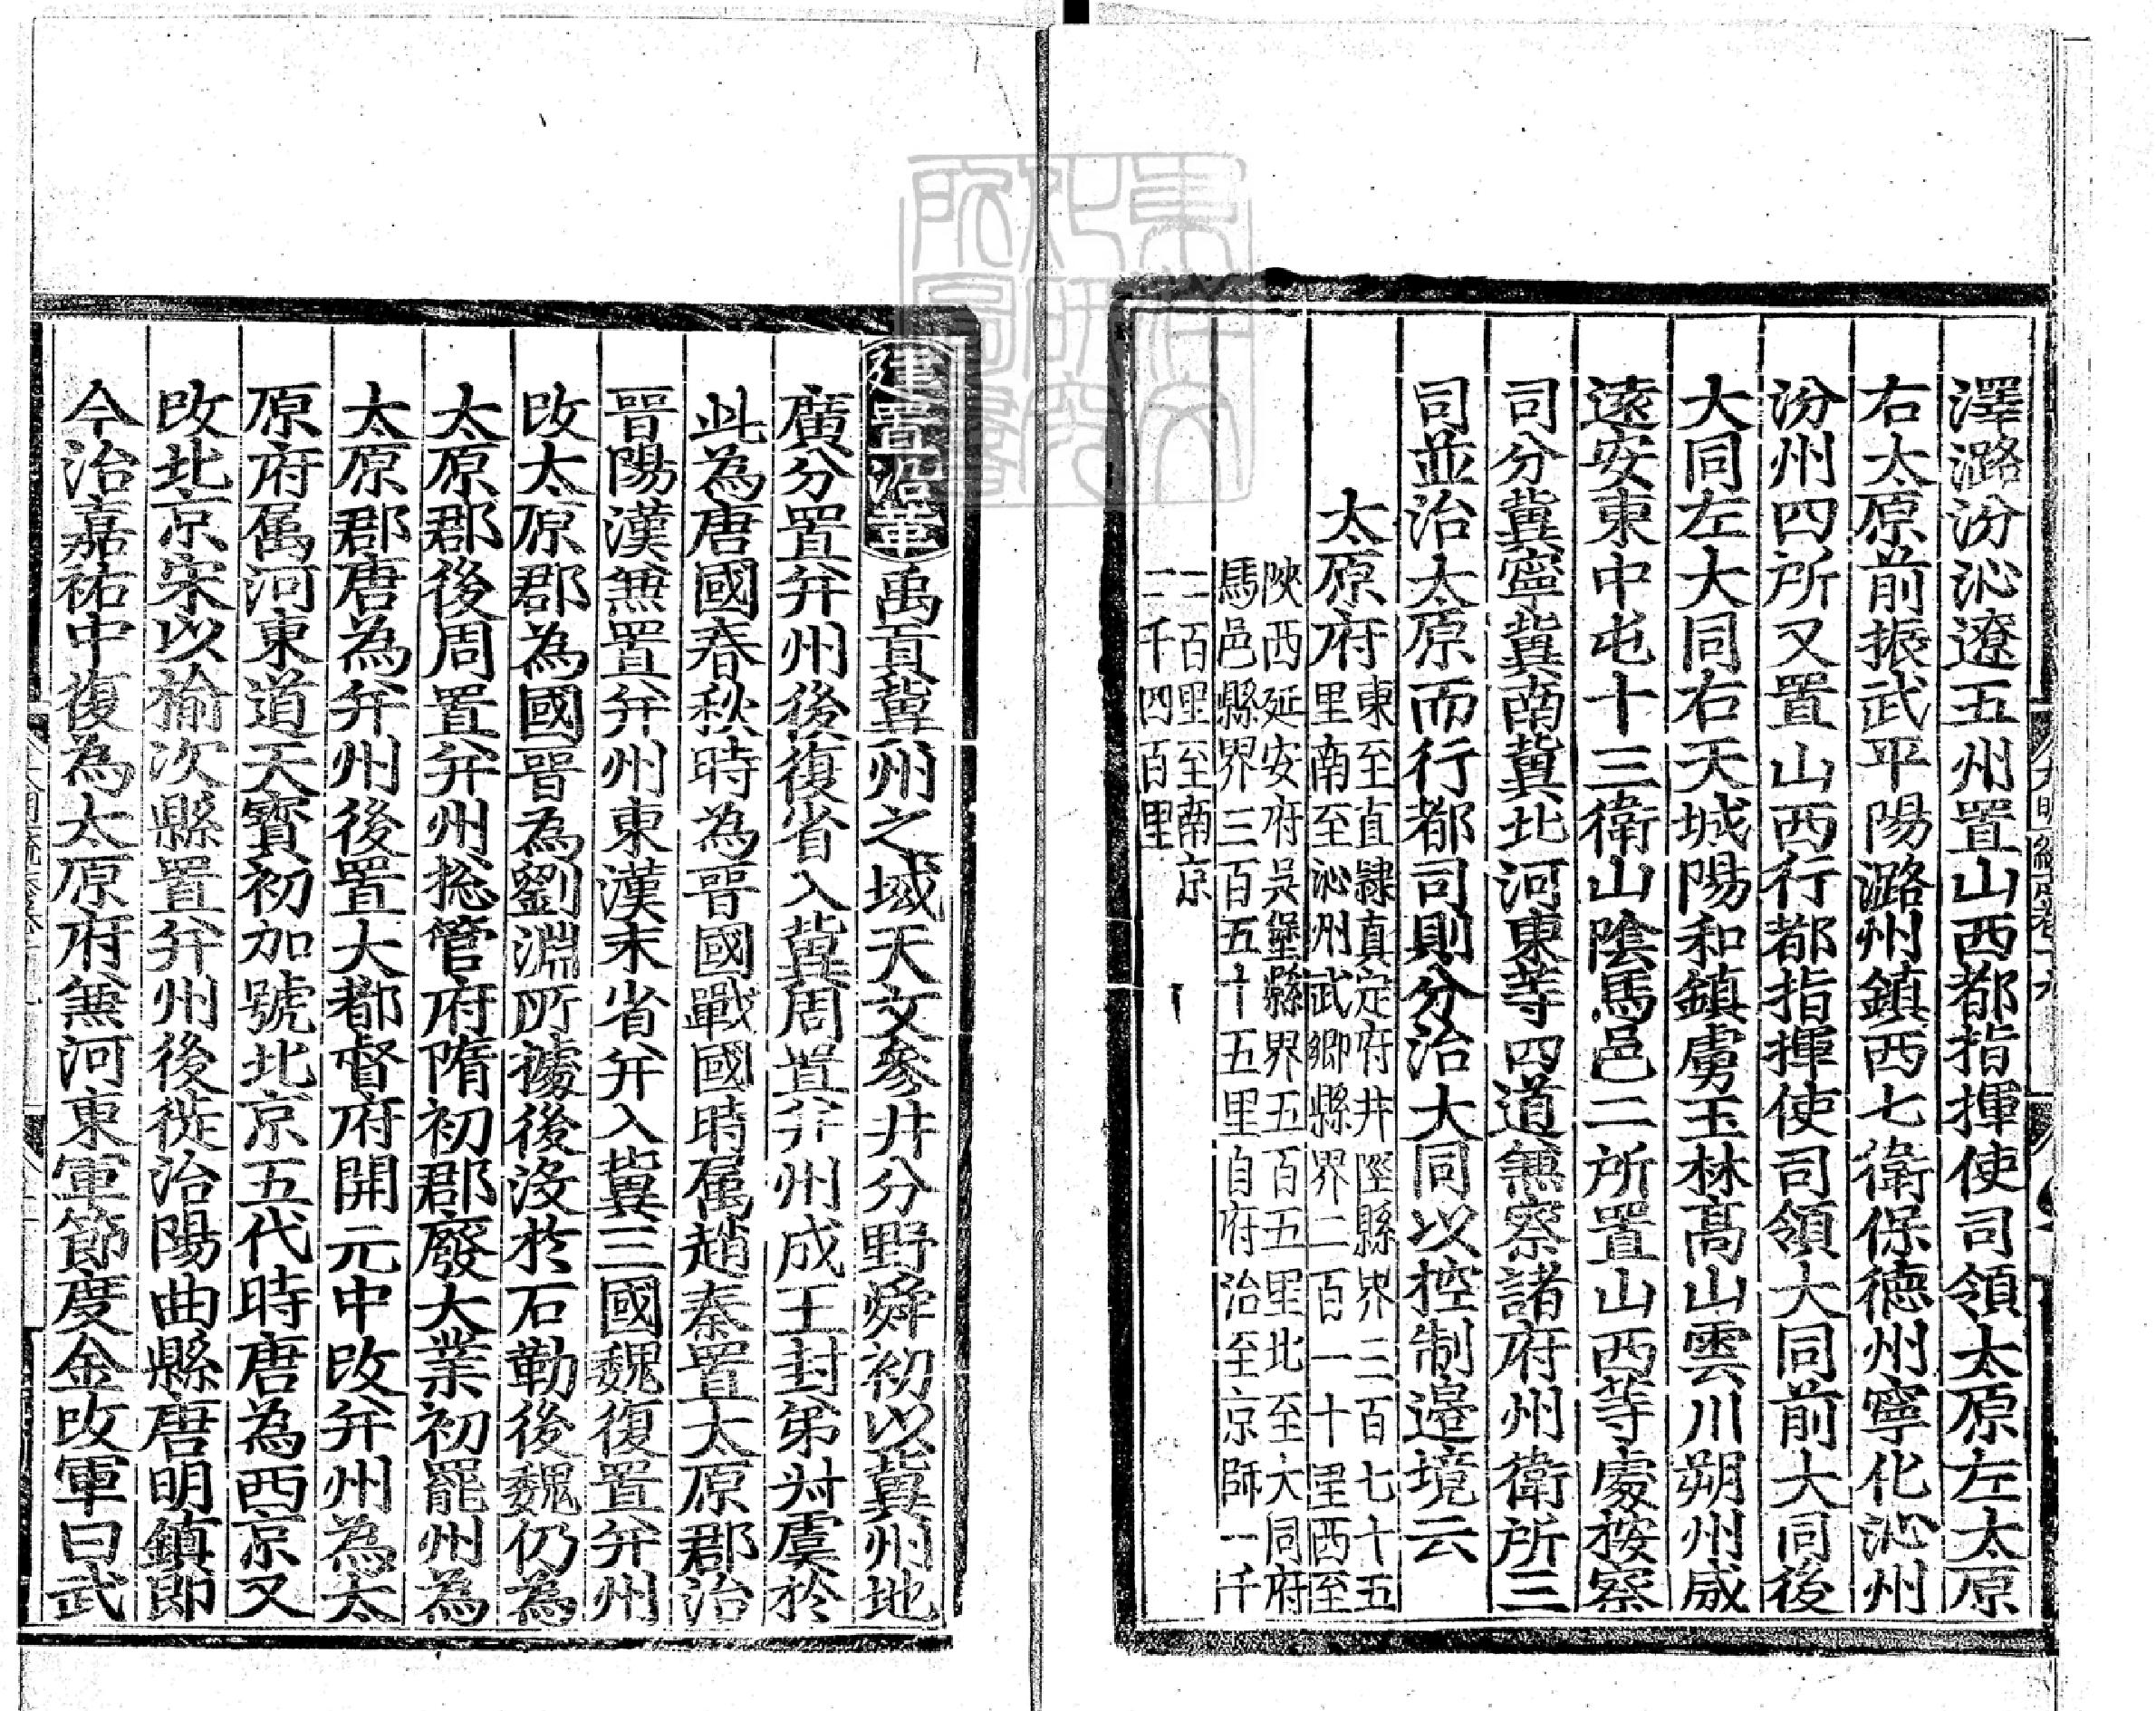 澤潞汾沁遼五州置山西都指揮使司領太原左太原
右太原前振武平陽潞州鎮西七衛保德州寧化沁州
汾州四所又置山西行都指揮使司領大同前大同後
大同左大同右天城陽和鎮虜玉林高山雲川朔州威
遠安東中屯十三衛山陰馬邑二所置山西等處按察
司分冀寧冀南冀北河東等四道無察諸府州衛所三
司並治太原而行都司則分治大同以控制邊境云
太原府
東至直隸真定府井陘縣界二百七十五
里南至沁州武鄉縣界二百一十里西至
陝西延安府吳堡縣界五百五里北至大同府
馬邑縣界三百五十五里自府治至京師一千
二百里至南京
二千四百里
建置沿革禹貢冀州之域天文參井分野舜初以冀州地
廣分置并州後復省入冀周置并州成王封弟叔虞於
此為唐國春秋時為晉國戰國時屬趙秦置太原郡治
晉陽漢無置并州東漢末省并入冀三國魏復置并州
改太原郡為國晉為劉淵所據後沒於石勒後魏仍為
太原郡後周置并州捴管府隋初郡廢大業初罷州為
太原郡唐為并州後置大都督府開元中改并州為太
原府屬河東道天寶初加號北京五代時唐為西京又
改北京宋以榆次縣置并州後徙治陽曲縣唐明鎮即
今治嘉祐中復為太原府無河東軍節度金改軍曰武